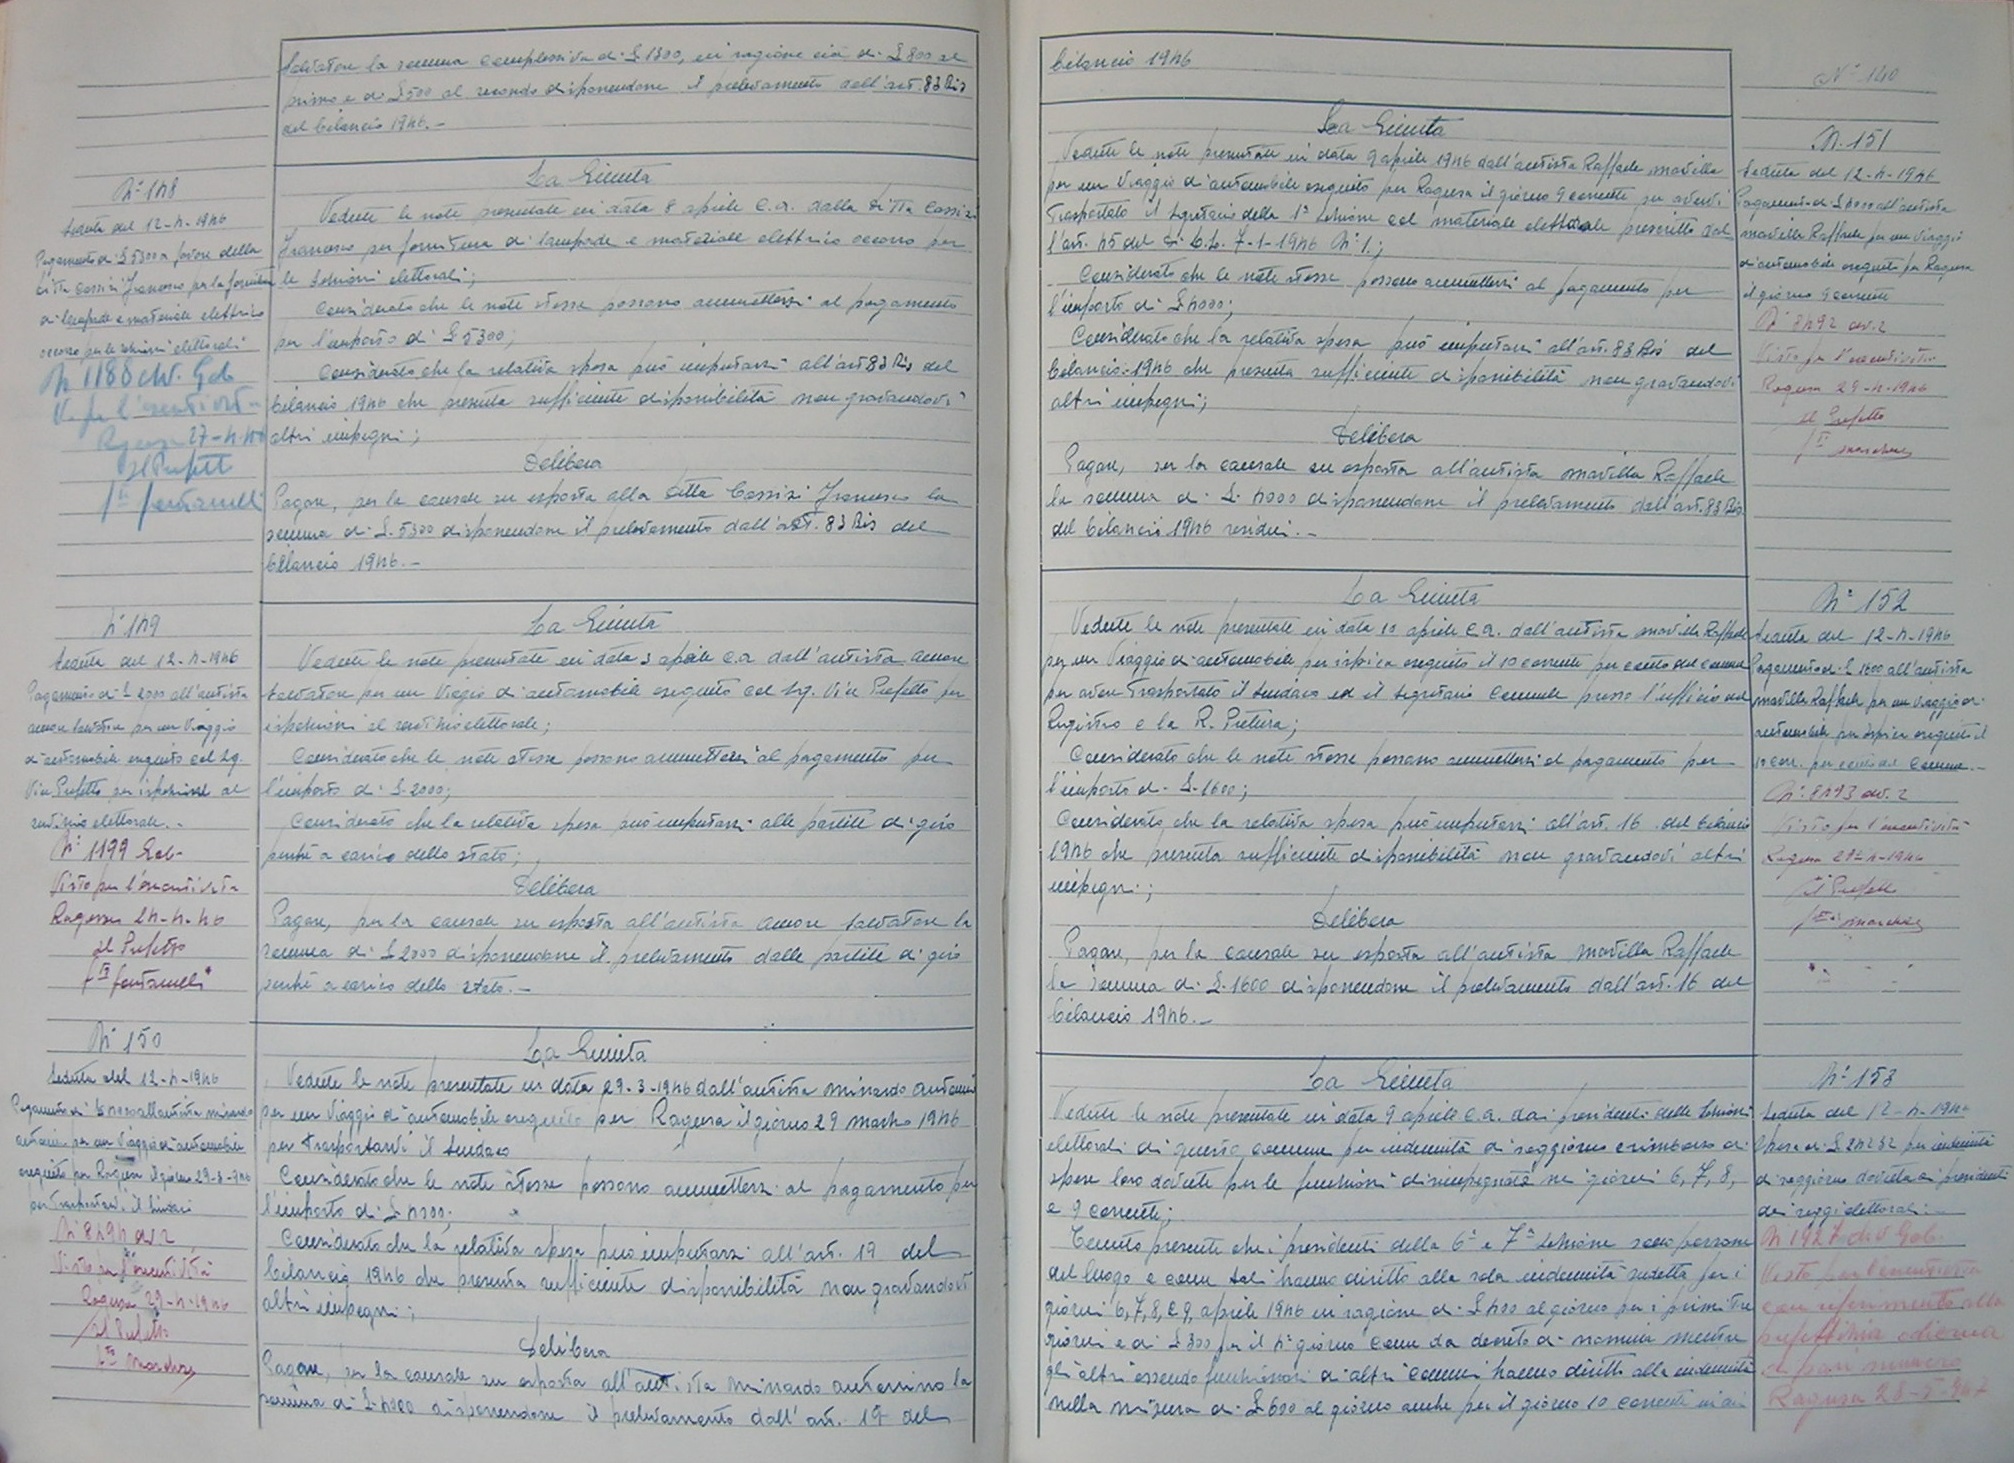 Salvatore la somma complessiva di £ 1300, in ragione cioè di £ 800 al
primo e di £ 500 al secondo disponendone il prelevamento dall'art. 83 Bis
del bilancio 1946.-
N° 148
Seduta del 12-4-1946
Pagamento di £ 5300 a favore della
Ditta Cassisi Francesco per la fornitura
di lampade e materiale elettrico
occorso per le sezioni elettorali
N° 1188 div. Gab
V° per l'esecutività
Ragusa 27-4-46
Il Prefetto
fto Fontanelli
La Giunta
Vedute le note presentate in data 8 aprile c.a. dalla Ditta Cassisi
Francesco per fornitura di lampade e materiale elettrico occorso per
le Sezioni elettorali;
Considerato che le note stesse possono ammettersi al pagamento
per l'importo di £ 5300;
Considerato che la relativa spesa può imputarsi all'art 83 Bis del
bilancio 1946 che presenta sufficiente disponibilità non gravandovi
altri impegni;
Delibera
Pagare, per la causale su esposta alla Ditta Cassisi Francesco la
somma di £. 5300 disponendone il prelevamento dall'art. 83 Bis del
bilancio 1946.-
N° 149
Seduta del 12-4-1946
Pagamento di £ 2000 all'autista
Amore Salvatore per un viaggio
di automobile eseguito col Sig.
Vice Prefetto per ispezione al
servizio elettorale.-
N° 1199 Gab-
Visto per l'esecutività
Ragusa 24-4-46
Il Prefetto
fto Fontanelli
La Giunta
Vedute le note presentate in data 3 aprile c.a. dall'autista Amore
Salvatore per un viaggio di automobile eseguito col Sig. Vice Prefetto per
ispezioni al servizio elettorale;
Considerato che le note stesse possono ammettersi al pagamento per
l'importo di £ 2000;
Considerato che la relativa spesa può imputarsi alle partite di giro
perché a carico dello stato;
Delibera
Pagare, per la causale su esposta all'autista Amore Salvatore la
somma di £ 2000 disponendone il prelevamento dalle partite di giro
perché a carico dello stato.-
N° 150
Seduta del 12-4-1946
Pagamento di £ 4000 all'autista Minardo
Antonino per un viaggio di automobile
eseguito per Ragusa il giorno 29-3-946
per trasportarvi il Sindaco
N° 8494 div 2
Visto per l'esecutività
Ragusa 29-4-1946
Il Prefetto
fto Marchese
La Giunta
Vedute le note presentate in data 29-3-1946 dall'autista Minardo Antonino
per un viaggio di automobile eseguito per Ragusa il giorno 29 marzo 1946
per trasportarvi il Sindaco
Considerato che le note stesse possono ammettersi al pagamento per
l'importo di £ 4000;
Considerato che la relativa spesa può imputarsi all'art. 19 del
bilancio 1946 che presenta sufficiente disponibilità non gravandovi
altri impegni;
Delibera
Pagare, per la causale su esposta all'autista Minardo Antonino la
somma di £ 4000 disponendone il prelevamento dall'art. 19 del
bilancio 1946
N° 140
La Giunta
Vedute le note presentate in data 9 aprile 1946 dall'autista Raffaele Mavilla
per un viaggio di automobile eseguito per Ragusa il giorno 9 corrente per avervi
trasportato il Segretario della 1a Sezione col materiale elettorale prescritto dal
l'art. 45 del D.L.L. 7-1-1946 N° 1;
Considerato che le note stesse possono ammettersi al pagamento per
l'importo di £ 4000;
Considerato che la relativa spesa può imputarsi all'art. 83 Bis del
bilancio 1946 che presenta sufficiente disponibilità non gravandovi
altri impegni;
Delibera
Pagare, per la causale su esposta all'autista Mavilla Raffaele
la somma di £. 4000 disponendone il prelevamento dall'art. 83 Bis
del bilancio 1946 residui.-
N. 151
Seduta del 12-4-1946
Pagamento di £ 4000 all'autista
Mavilla Raffaele per un viaggio
di automobile eseguito per Ragusa
il giorno 9 corrente
N° 8492 div. 2
Visto per l'esecutività
Ragusa 29-4-1946
Il Prefetto
fto Marchese
La Giunta
Vedute le note presentate in data 10 aprile c.a. dall'autista Mavilla Raffaele
per un viaggio di automobile per Ispica eseguito il 10 corrente per conto del Comune
per avere trasportato il Sindaco ed il Segretario Comunale presso l'ufficio del
Registro e la R. Pretura;
Considerato che le note stesse possono ammettersi al pagamento per
l'importo di £. 1600;
Considerato che la relativa spesa può imputarsi all'art. 16 del bilancio
1946 che presenta sufficiente disponibilità non gravandovi altri
impegni;
Delibera
Pagare, per la causale su esposta all'autista Mavilla Raffaele
la somma di £. 1600 disponendone il prelevamento dall'art. 16 del
bilancio 1946.-
N° 152
Seduta del 12-4-1946
Pagamento di £ 1600 all'autista
Mavilla Raffaele per un viaggio di
automobile per Ispica eseguito il
10 corr. per conto del Comune.-
N° 8493 div. 2
Visto per l'esecutività
Ragusa 29-4-1946
Il Prefetto
fto Marchese
La Giunta
Vedute le note presentate in data 9 aprile c.a. dai presidenti delle Sezioni
elettorali di questo comune per indennità di soggiorno e rimborso di
spese loro dovute per le funzioni disimpegnate nei giorni 6, 7, 8,
e 9 corrente;
Tenuto presente che i presidenti della 6a e 7a Sezione sono persone
del luogo e come tali hanno diritto alla sola indennità ridotta per i
giorni 6, 7, 8, e 9, aprile 1946 in ragione di £ 400 al giorno per i primi tre
giorni e di £ 300 per il 4° giorno come da decreto di nomina mentre
gli altri essendo funzionari di altri comuni hanno diritto alla indennità
nella misura di £ 600 al giorno anche per il giorno 10 corrente in cui
N° 153
Seduta del 12-4-1946
Spesa di £ 24232 per indennità
di soggiorno dovuta ai presidenti
dei seggi elettorali.
N° 1927 div Gab.
Visto per l'esecutività
con riferimento alla
prefettizia odierna
di pari numero
Ragusa 28-5-946